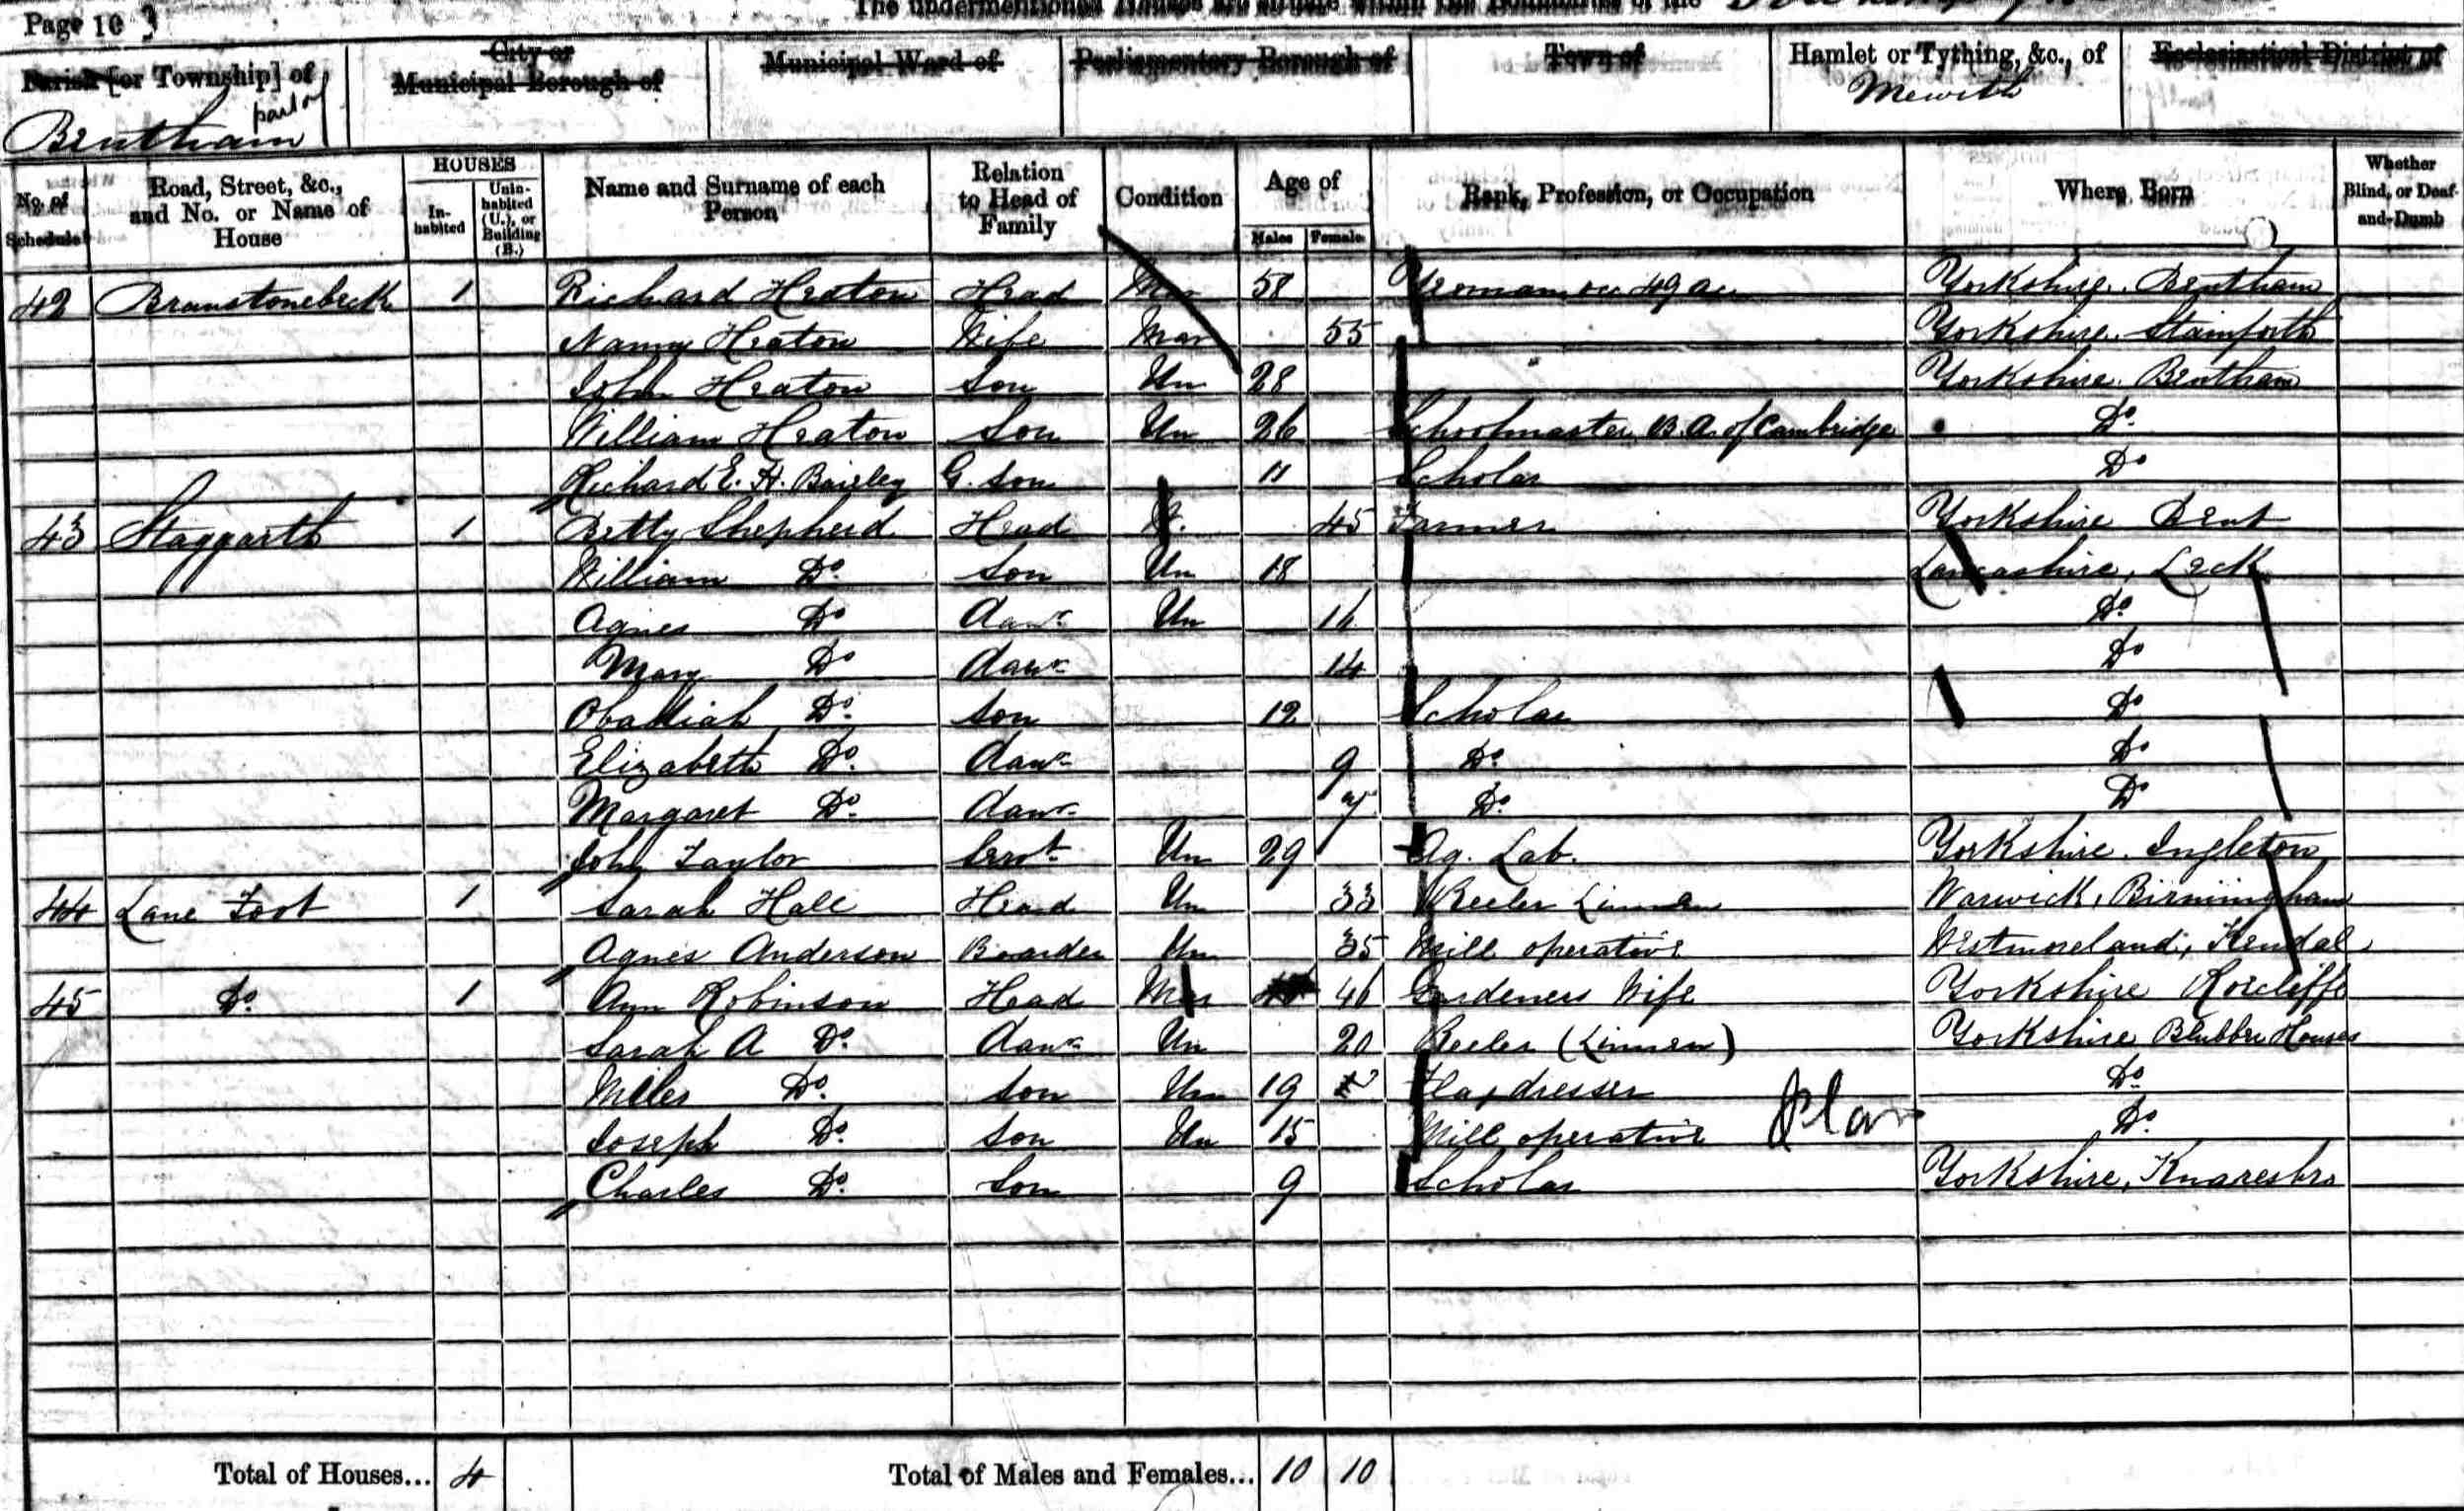 Page 10 3
The undermentioned Houses are situate within the Boundaries of the
Parish [or Township] of
part of
Bentham
City or
Municipal Borough of
Municipal Ward of
Parliamentary Borough of
Town of
Hamlet or Tything, &c., of
Mewith
Ecclesiastical District of
No. of Schedule
Road, Street, &c., and No. or Name of House
HOUSES
In-habited
Unin-habited (U.), or Building (B.)
Name and Surname of each Person
Relation to Head of Family
Condition
Age of
Males Females
Rank, Profession, or Occupation
Where Born
Whether Blind, or Deaf-and-Dumb
42 Branstonebeck 1 Richard Heaton Head Mar 58 Yeoman occ 49 ac Yorkshire, Bentham
Nanny Heaton Wife Mar 55 Yorkshire, Stainforth
John Heaton Son Un 28 Yorkshire Bentham
William Heaton Son Un 26 Schoolmaster B.A. of Cambridge Do.
Richard E. H. G. Son 11 Scholar Do
43 Staggarth 1 Betty Shepherd Head 45 Farmer Yorkshire Bent
William Do. Son Un 18 Lancashire, Leck
Agnes Do Daur Un 16 Do.
Mary Do Daur 14 Do
Obadiah Do. Son 12 Scholar Do
Elizabeth Do. Daur 9 Do. Do
Margaret Do. Daur 7 Do. Do
John Taylor Servt Un 29 Ag. Lab. Yorkshire. Ingleton
44 Lane Foot 1 Sarah Hall Head Un 33 Reeler Linnen Warwick, Birmingham
Agnes Anderson Boarder Un 35 Mill operative Westmoreland, Kendal
45 Do. 1 Ann Robinson Head Mar 46 Gardeners Wife Yorkshire Roecliffe
Sarah A Do. Daur Un 20 Reeler (Linnen) Yorkshire Blubber Houses
Miles Do. Son Un 19 Flaxdresser Do.
Joseph Do. Son Un 15 Mill operative Do.
Charles Do. Son 9 Scholar Yorkshire, Knaresbro
Total of Houses... 4 Total of Males and Females... 10 10